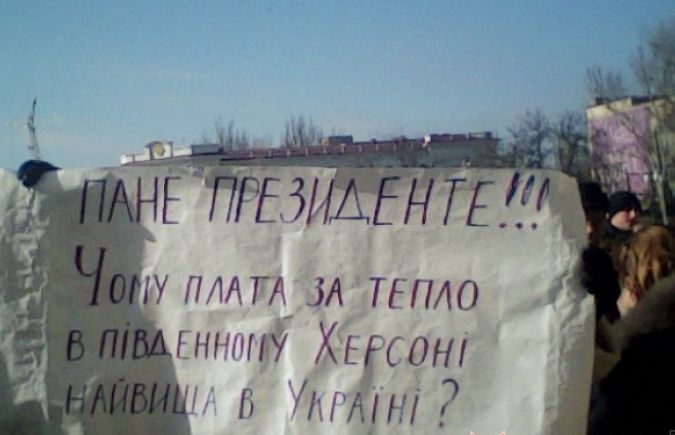 ПАНЕ ПРЕЗИДЕНТЕ!!!
Чому плата за тепло
в південному Херсоні
найвища в Україні?